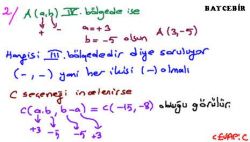 BATCEBİR
2/ A(a,b) IV. bölgede ise
+ -
a=+3
b=-5 olsun A(3,-5)
Hangisi III. bölgededir diye soruluyor
(-,-) yani her ikisi (-) olmalı
C seçeneği incelenirse
C(a.b, b-a) = C(-15,-8) olduğu görülür.
+3 -5 -5 +3
CEVAP: C